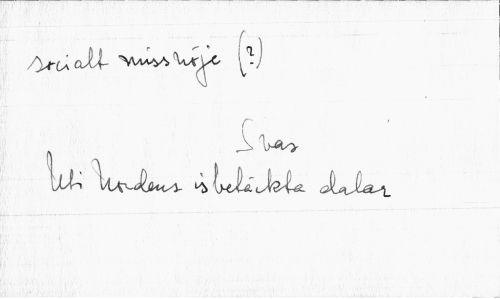 socialt missnöje (?)
Svar
Uti Nordens isbetäckta dalar